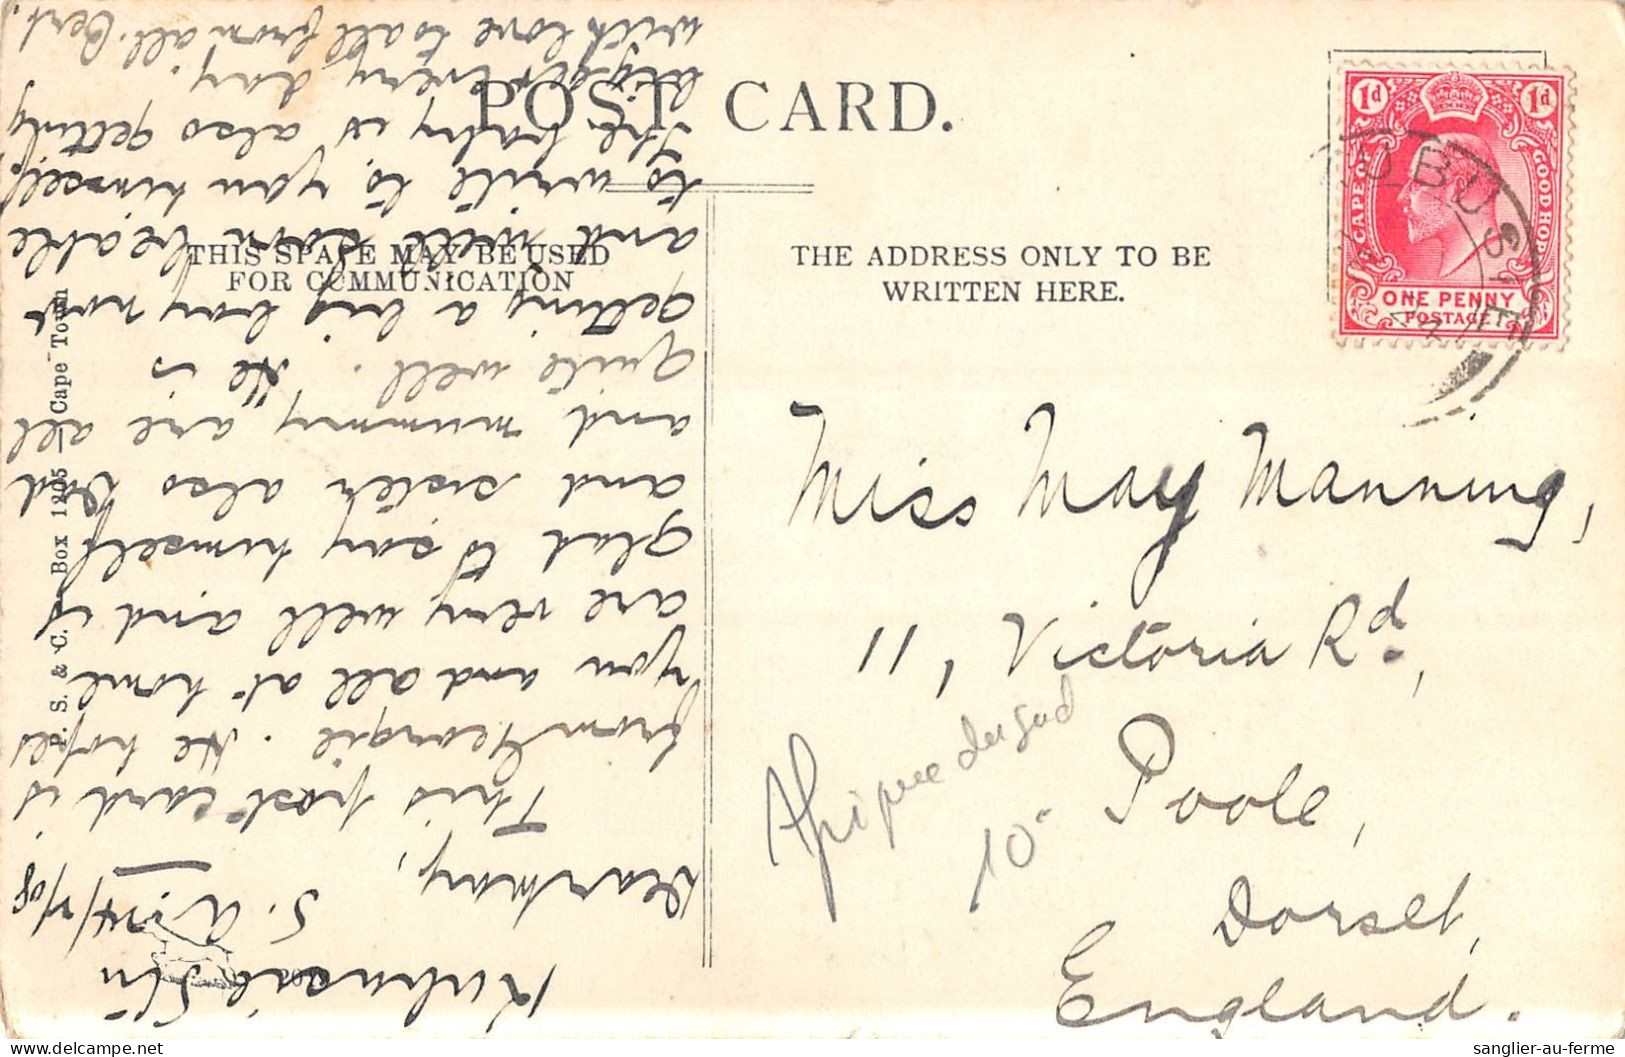 POST CARD.
THIS SPACE MAY BE USED
FOR COMMUNICATION
THE ADDRESS ONLY TO BE
WRITTEN HERE.
P. S. & C. Box 1205 - Cape Town
1d 1d
CAPE OF GOOD HOPE
ONE PENNY
POSTAGE
UBUSI E
Kubusie Stn
S. A. 14/7/08
Dear May,
This post card is
from Georgie. He hopes
you and all at home
are very well and is
glad to say himself
and sister also Dad
and mummy are all
quite well. He is
getting a big boy now
and will soon be able
to write to you himself.
The baby is also getting
bigger every day.
with love to all from all. Bert.
Miss May Manning,
11, Victoria Rd.,
Poole,
Dorset,
England.
Afrique du Sud
10-
sanglier-au-ferme